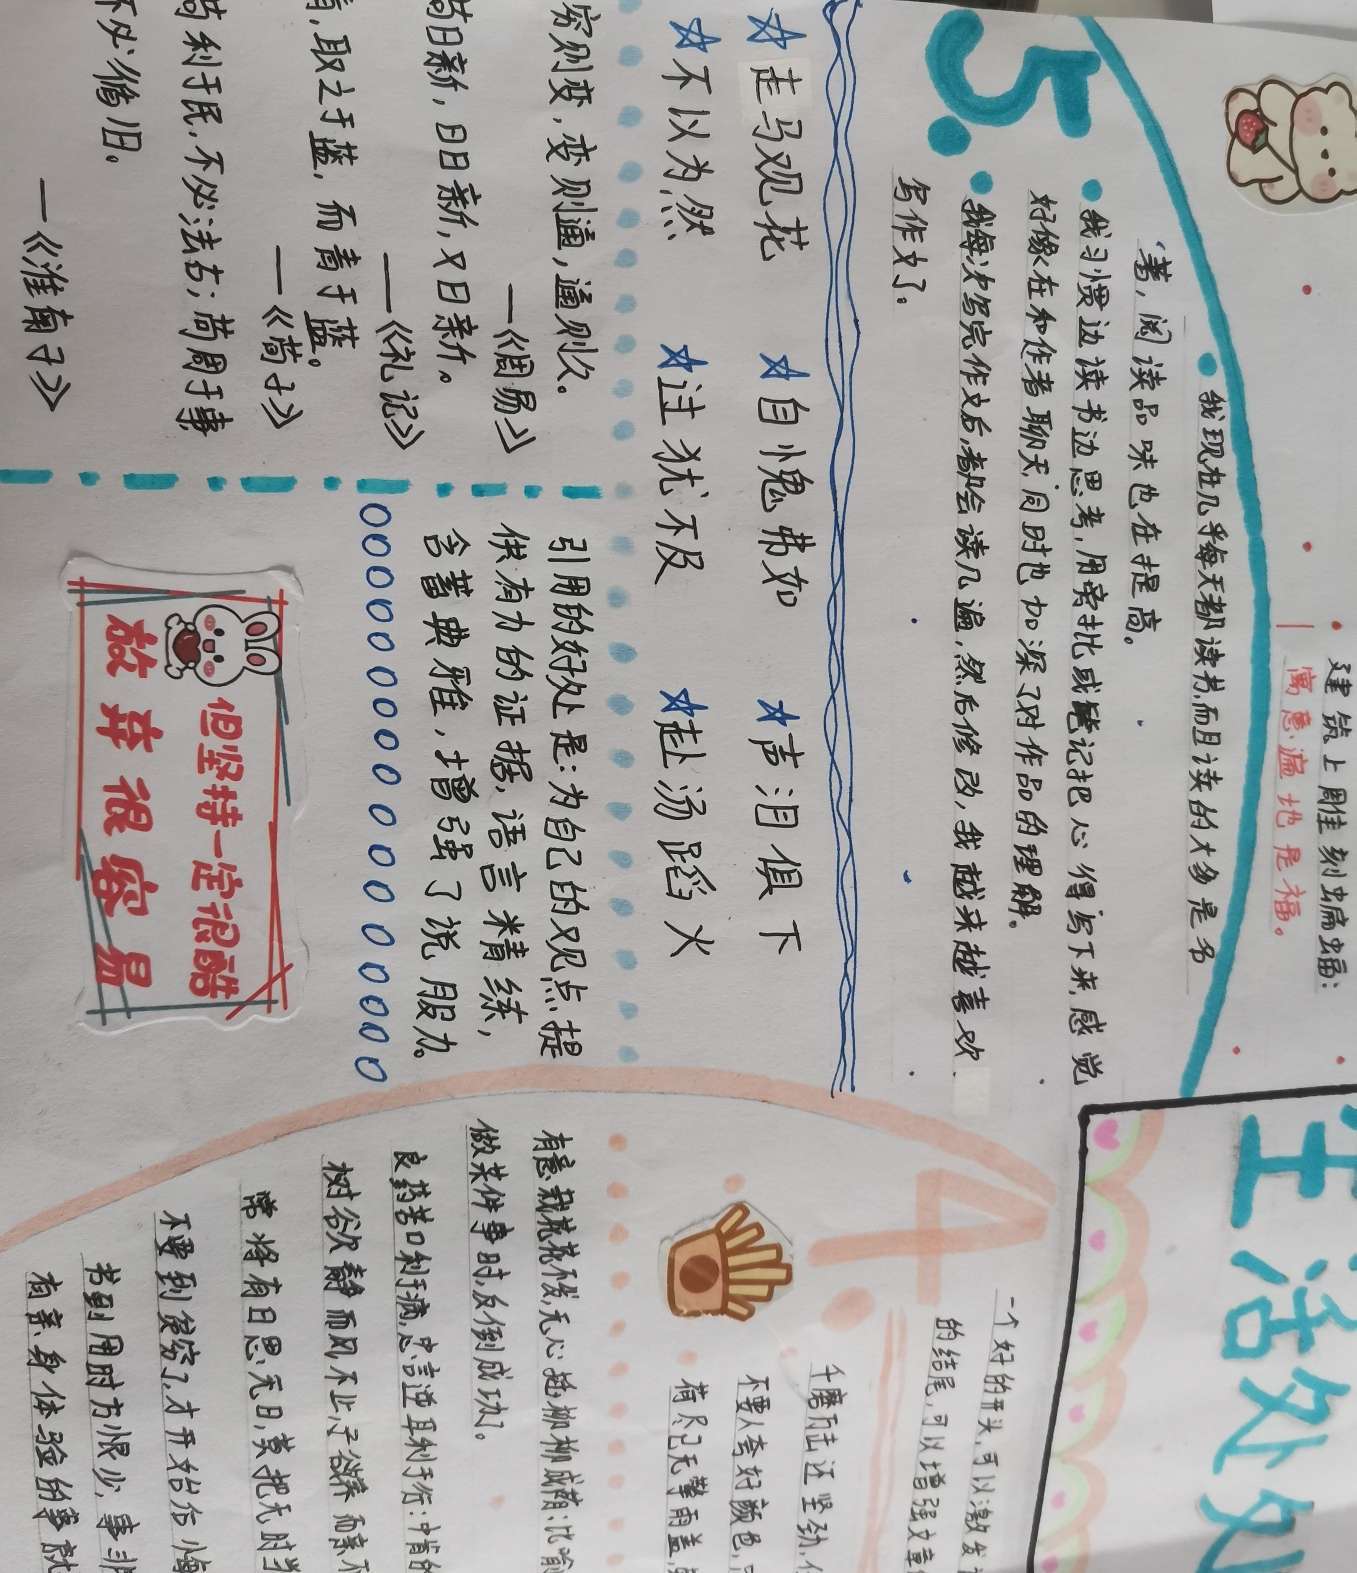 建筑上雕刻蝙蝠:
寓意遍地是福。
5.
我现在几乎每天都读书,而且读的大多是名
著,阅读品味也在提高。
我习惯边读书边思考,用旁批或笔记把心得写下来,感觉
好像在和作者聊天,同时也加深了对作品的理解。
我每次写完作文后,都会读几遍,然后修改,我越来越喜欢
写作文了。
走马观花 自愧弗如 声泪俱下
不以为然 过犹不及 赴汤蹈火
穷则变,变则通,通则久。
—《周易》
苟日新,日日新,又日新。
——《礼记》
取之于蓝,而青于蓝。
——《荀子》
苟利于民,不必法古;苟周于事
不必循旧。
—《淮南子》
引用的好处是:为自己的观点提
供有力的证据,语言精练,
含蓄典雅,增强了说服力。
但坚持一定很酷
放弃很容易
生活处处
4.
一个好的开头,可以激发
的结尾,可以增强文章
千磨万击还坚劲,
不要人夸好颜色,
荷尽已无擎雨盖,
有意栽花花不发,无心插柳柳成荫:比喻
做某件事时,反倒成功了。
良药苦口利于病,忠言逆耳利于行:中肯的
树欲静而风不止,子欲养而亲不
常将有日思无日,莫把无时当
不要到贫穷了,才开始后悔
书到用时方恨少,事非
有亲身体验的事就